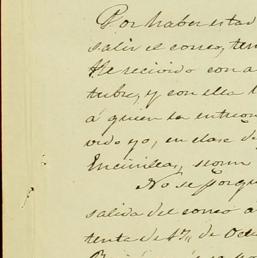 Por haber estad
salir el correo, ten
He recibido con a
tubre, y con ella
á quien la entreg
vido yo, en clase d
Encinillas, segun
No se porqu
salida del correo a
tenta de 17 de Octu